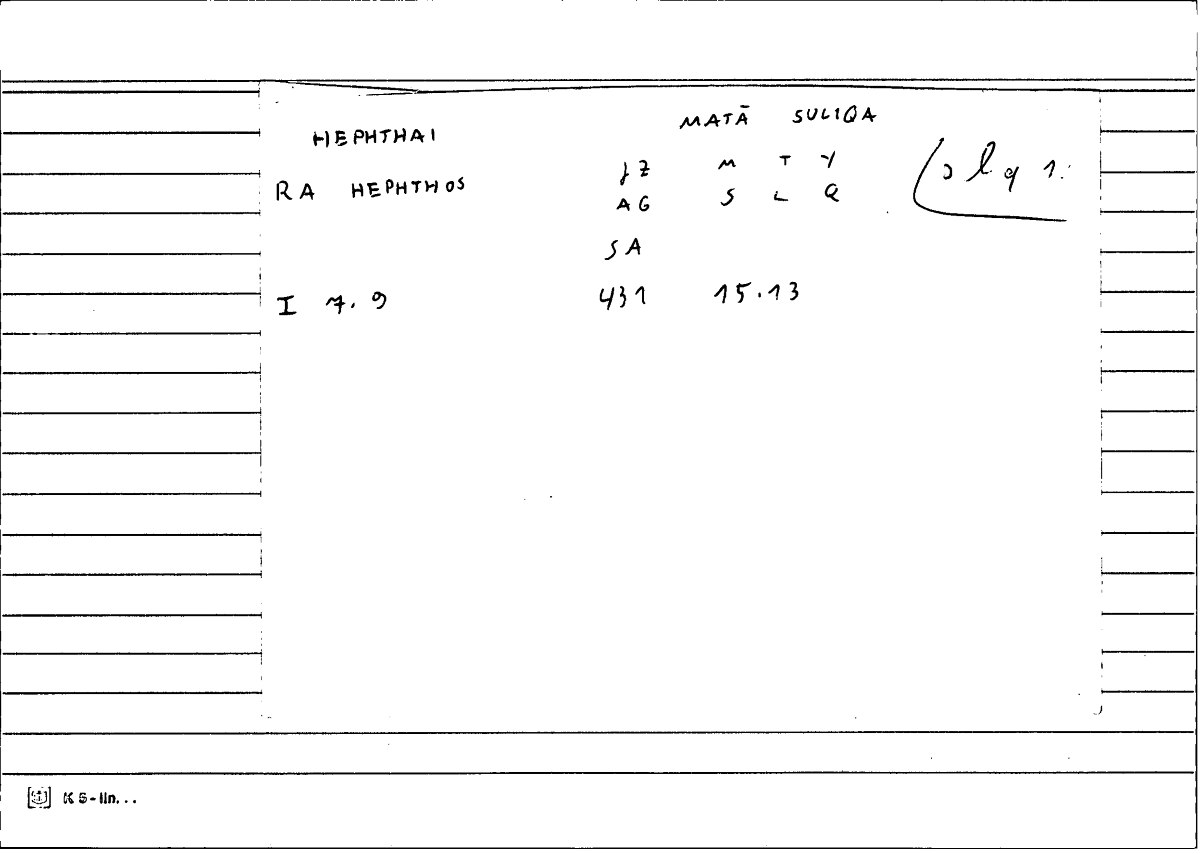 MATĀ SULIQA
HEPHTHAI
JZ M T Y
RA HEPHTHOS
AG S L Q
slq 1:
SA
I 7.9 431 15.13
K 5-lin...